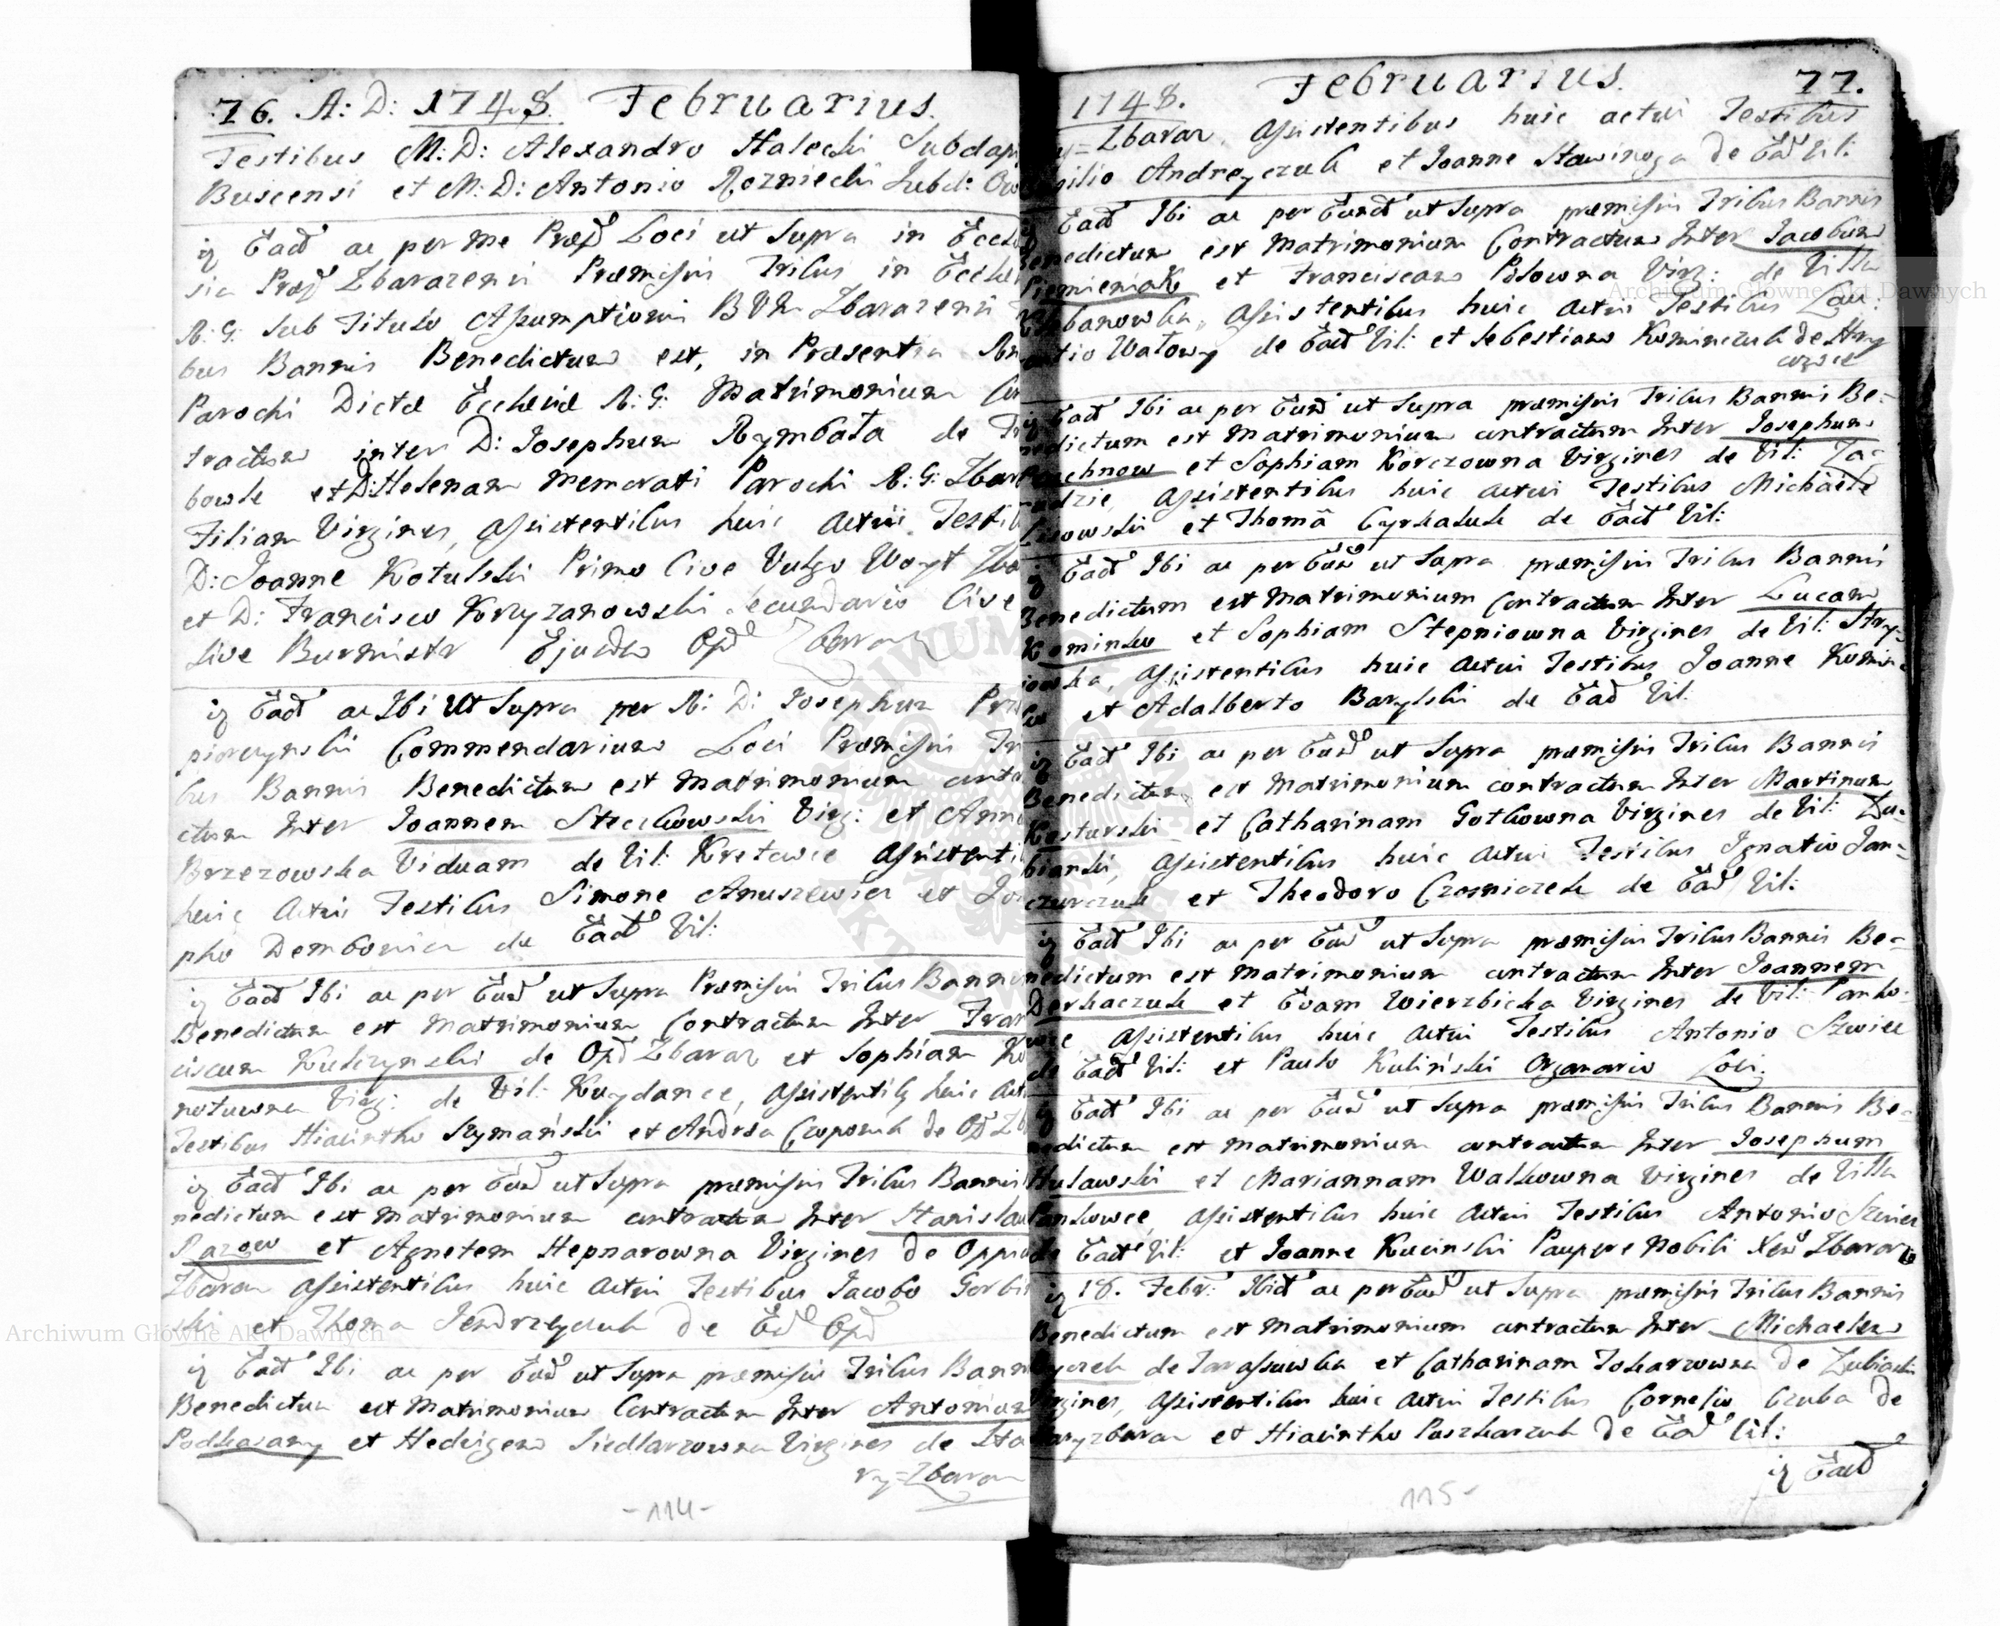 76. A: D: 1748. Februarius.
Testibus M: D: Alexandro Halecki Subdap
Buscensi et M: D: Antonio Rozniecki Subd:
Ead ac per me Præp Loci ut Supra in Eccle
sia Præp Zbarazensi Præmissis Tribus in Eccle
R. G. sub Titulo Assumptionis BVM Zbarazensi
bus Bannis Benedictum est, in Præsentia
Parochi Dictæ Ecclesiæ R: G: Matrimonium Con
tractum inter D: Josephum Rymbała de
bowle et D: Helenam memorati Parochi R: G: Zbar
Filiam Virgines, assistentibus huic actui Testi
D: Joanne Kotulski Primo Cive Vulgo Woyt Zba
et D: Francisco Krzyzanowski Secundario Cive
sive Burmistr Ejusdem Opd Zbaraz
Ead ac Ibi ut Supra per R: D: Josephum Prz
piorczynski Commendarium Loci Præmissis Tri
bus Bannis Benedictum est Matrimonium contra
ctum Inter Joannem Steckowski Virg: et Anna
Brzezowska Viduam de Vil: Kretowce assistenti
huic actui Testibus Simone Anuszewicz et Jose
pho Dembowicz de Ead Vil:
Ead Ibi ac per Eund ut Supra Præmissis Tribus Bannis
Benedictum est Matrimonium Contractum Inter Fran
ciscum Kulczynski de Opd Zbaraz et Sophiam Ko
notowna Virg: de Vil: Kuydance, assistentib huic acti
Testibus Hiacintho Szymański et Andrea Czopowik de Opd Zb
Ead Ibi ac per Eund ut Supra præmissis Tribus Bannis
nedictum est Matrimonium contractum Inter Stanislau
Pazow et Agnetem Hepnarowna Virgines de Oppid
Zbaraz assistentibus huic actui Testibus Jacobo Gorbi
ski et Thoma Jendrzeyczuk de Ed Opd
Ead Ibi ac per Eund ut Supra præmissis Tribus Bann
Benedictum est Matrimonium Contractum Inter Antonium
Podhasany et Hedvigem Siedlarzowna Virgines de Sta
ry=Zbaraz
-114-
1748. Februarius. 77.
ry=Zbaraz, assistentibus huic actui Testibus
silio Andreyczuk et Joanne Stawinoga de Ead Vil:
Ead Ibi ac per Eund ut Supra præmissis Tribus Bannis
Benedictum est Matrimonium Contractum Inter Jacobum
Piemieniak et Franciscam Posowna Virg: de Villa
banowka, assistentibus huic actui Testibus Lau:
rentio Watowy de Ead Vil: et Sebestiano Kominczuk de Hry
cowce
Ead Ibi ac per Eund ut Supra præmissis Tribus Bannis Be=
nedictum est Matrimonium contractum Inter Josephum
chnow et Sophiam Korczowna Virgines de Vil: Za=
rudzie, assistentibus huic actui Testibus Michaele
Lisowski et Thomā Cyrkaluk de Ead Vil:
Ead Ibi ac per Eund ut Supra præmissis Tribus Bannis
Benedictum est Matrimonium Contractum Inter Lucam
Kominko et Sophiam Stepniowna Virgines de Vil: Hry=
iowka, assistentibus huic actui Testibus Joanne Komin
et Adalberto Barylski de Ead Vil:
Ead Ibi ac per Eund ut Supra præmissis Tribus Bannis
Benedictum est Matrimonium contractum Inter Martinum
Kosturski et Catharinam Gotkowna Virgines de Vil: Lu=
bianki, assistentibus huic actui Testibus Ignatio Jan=
czurczuk et Theodoro Czosniczek de Ead Vil:
Ead Ibi ac per Eund ut Supra præmissis Tribus Bannis Be=
nedictum est Matrimonium contractum Inter Joannem
Derkaczuk et Evam Wierzbicka Virgines de Vil: Panko=
wce assistentibus huic actui Testibus Antonio Szwiec
de Ead Vil: et Paulo Kuliński Organario Loci.
Ead Ibi ac per Eund ut Supra præmissis Tribus Bannis Be=
nedictum est Matrimonium contractum Inter Josephum
Hulawski et Mariannam Walkowna Virgines de Villa
Pankowce, assistentibus huic actui Testibus Antonio Szwiec
de Ead Vil: et Joanne Kucinski Paupere Nobili Zbaraz
18. Febr: Ibid ac per Eund ut Supra præmissis Tribus Bannis
Benedictum est Matrimonium contractum Inter Michaelem
de Tarassuwka et Catharinam Tokarzowna de Lubianki
Virgines, assistentibus huic actui Testibus Cornelio Czuba de
Staryzbaraz et Hiacintho Paszkaczuk de Ead Vil:
Ead
115-
Archiwum Główne Akt Dawnych
Archiwum Główne Akt Dawnych